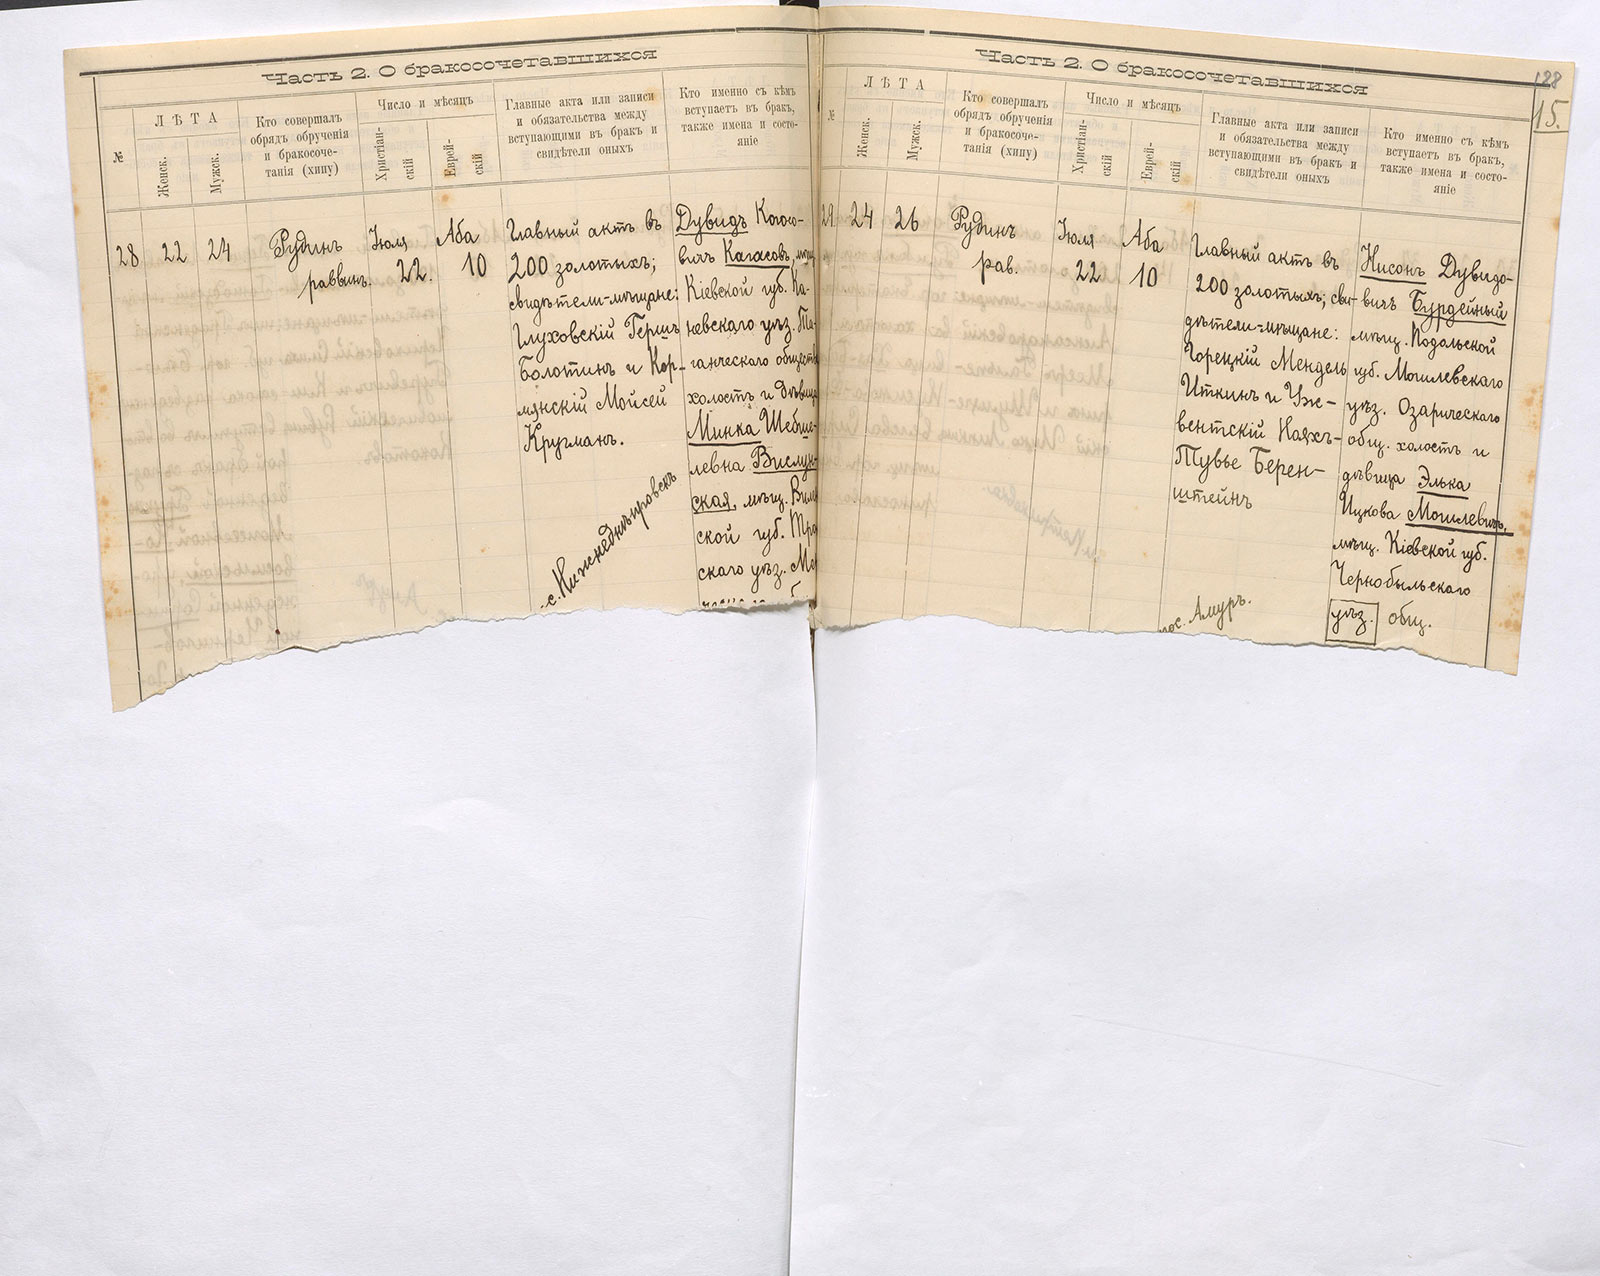 Часть 2. О бракосочетавшихся
№
ЛѢТА
Женск.
Мужск.
Кто совершалъ
обрядъ обрученія
и бракосоче-
танія (хипу)
Число и мѣсяцъ
Христіан-
скій
Еврей-
скій
Главные акта или записи
и обязательства между
вступающими въ бракъ и
свидѣтели оныхъ
Кто именно съ кѣмъ
вступаетъ въ бракъ,
также имена и состо-
яніе
28
22
24
Рубинъ
раввинъ.
Іюля
22.
Аба
10
Главный актъ въ
200 золотыхъ;
свидѣтели-мѣщане:
Глуховскій Гершъ
Болотинъ и Кор-
мянскій Мойсей
Кругманъ.
с. Нижнеднѣпровскъ
Дувидъ
вичъ Кагасовъ,
Кіевской губ. Ка-
невскаго уѣз. Та-
ганческаго обществ
холостъ и дѣвица
Минка Шебше-
левна Вислун-
ская, мѣщ. Вилен
ской губ. Тро
скаго уѣз. Ме
Часть 2. О бракосочетавшихся
128
15.
№
ЛѢТА
Женск.
Мужск.
Кто совершалъ
обрядъ обрученія
и бракосоче-
танія (хипу)
Число и мѣсяцъ
Христіан-
скій
Еврей-
скій
Главные акта или записи
и обязательства между
вступающими въ бракъ и
свидѣтели оныхъ
Кто именно съ кѣмъ
вступаетъ въ бракъ,
также имена и состо-
яніе
29
24
26
Рубинъ
рав.
Іюля
22
Аба
10
Главный актъ въ
200 золотыхъ; сви-
дѣтели-мѣщане:
Горецкій Мендель
Иткинъ и Уж-
вентскій Наяхъ-
Тувье Берен-
штейнъ
пос. Амуръ.
Нисонъ Дувидо-
вичъ Бурдейный
мѣщ. Подольской
губ. Могилевскаго
уѣз. Озарическаго
общ. холостъ и
дѣвица Элька
Ицкова Могилевичъ,
мѣщ. Кіевской губ.
Чернобыльскаго
уѣз. общ.